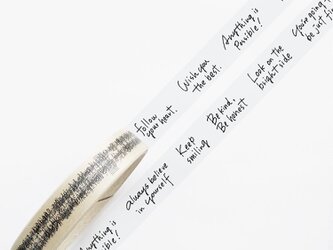 follow
your heart.
Wish you
the best.
Anything is
Possible!
Anything is
Possible!
always believe
in yourself
Keep
smiling
Be kind,
Be honest
Look on the
bright side
You're going to
be just